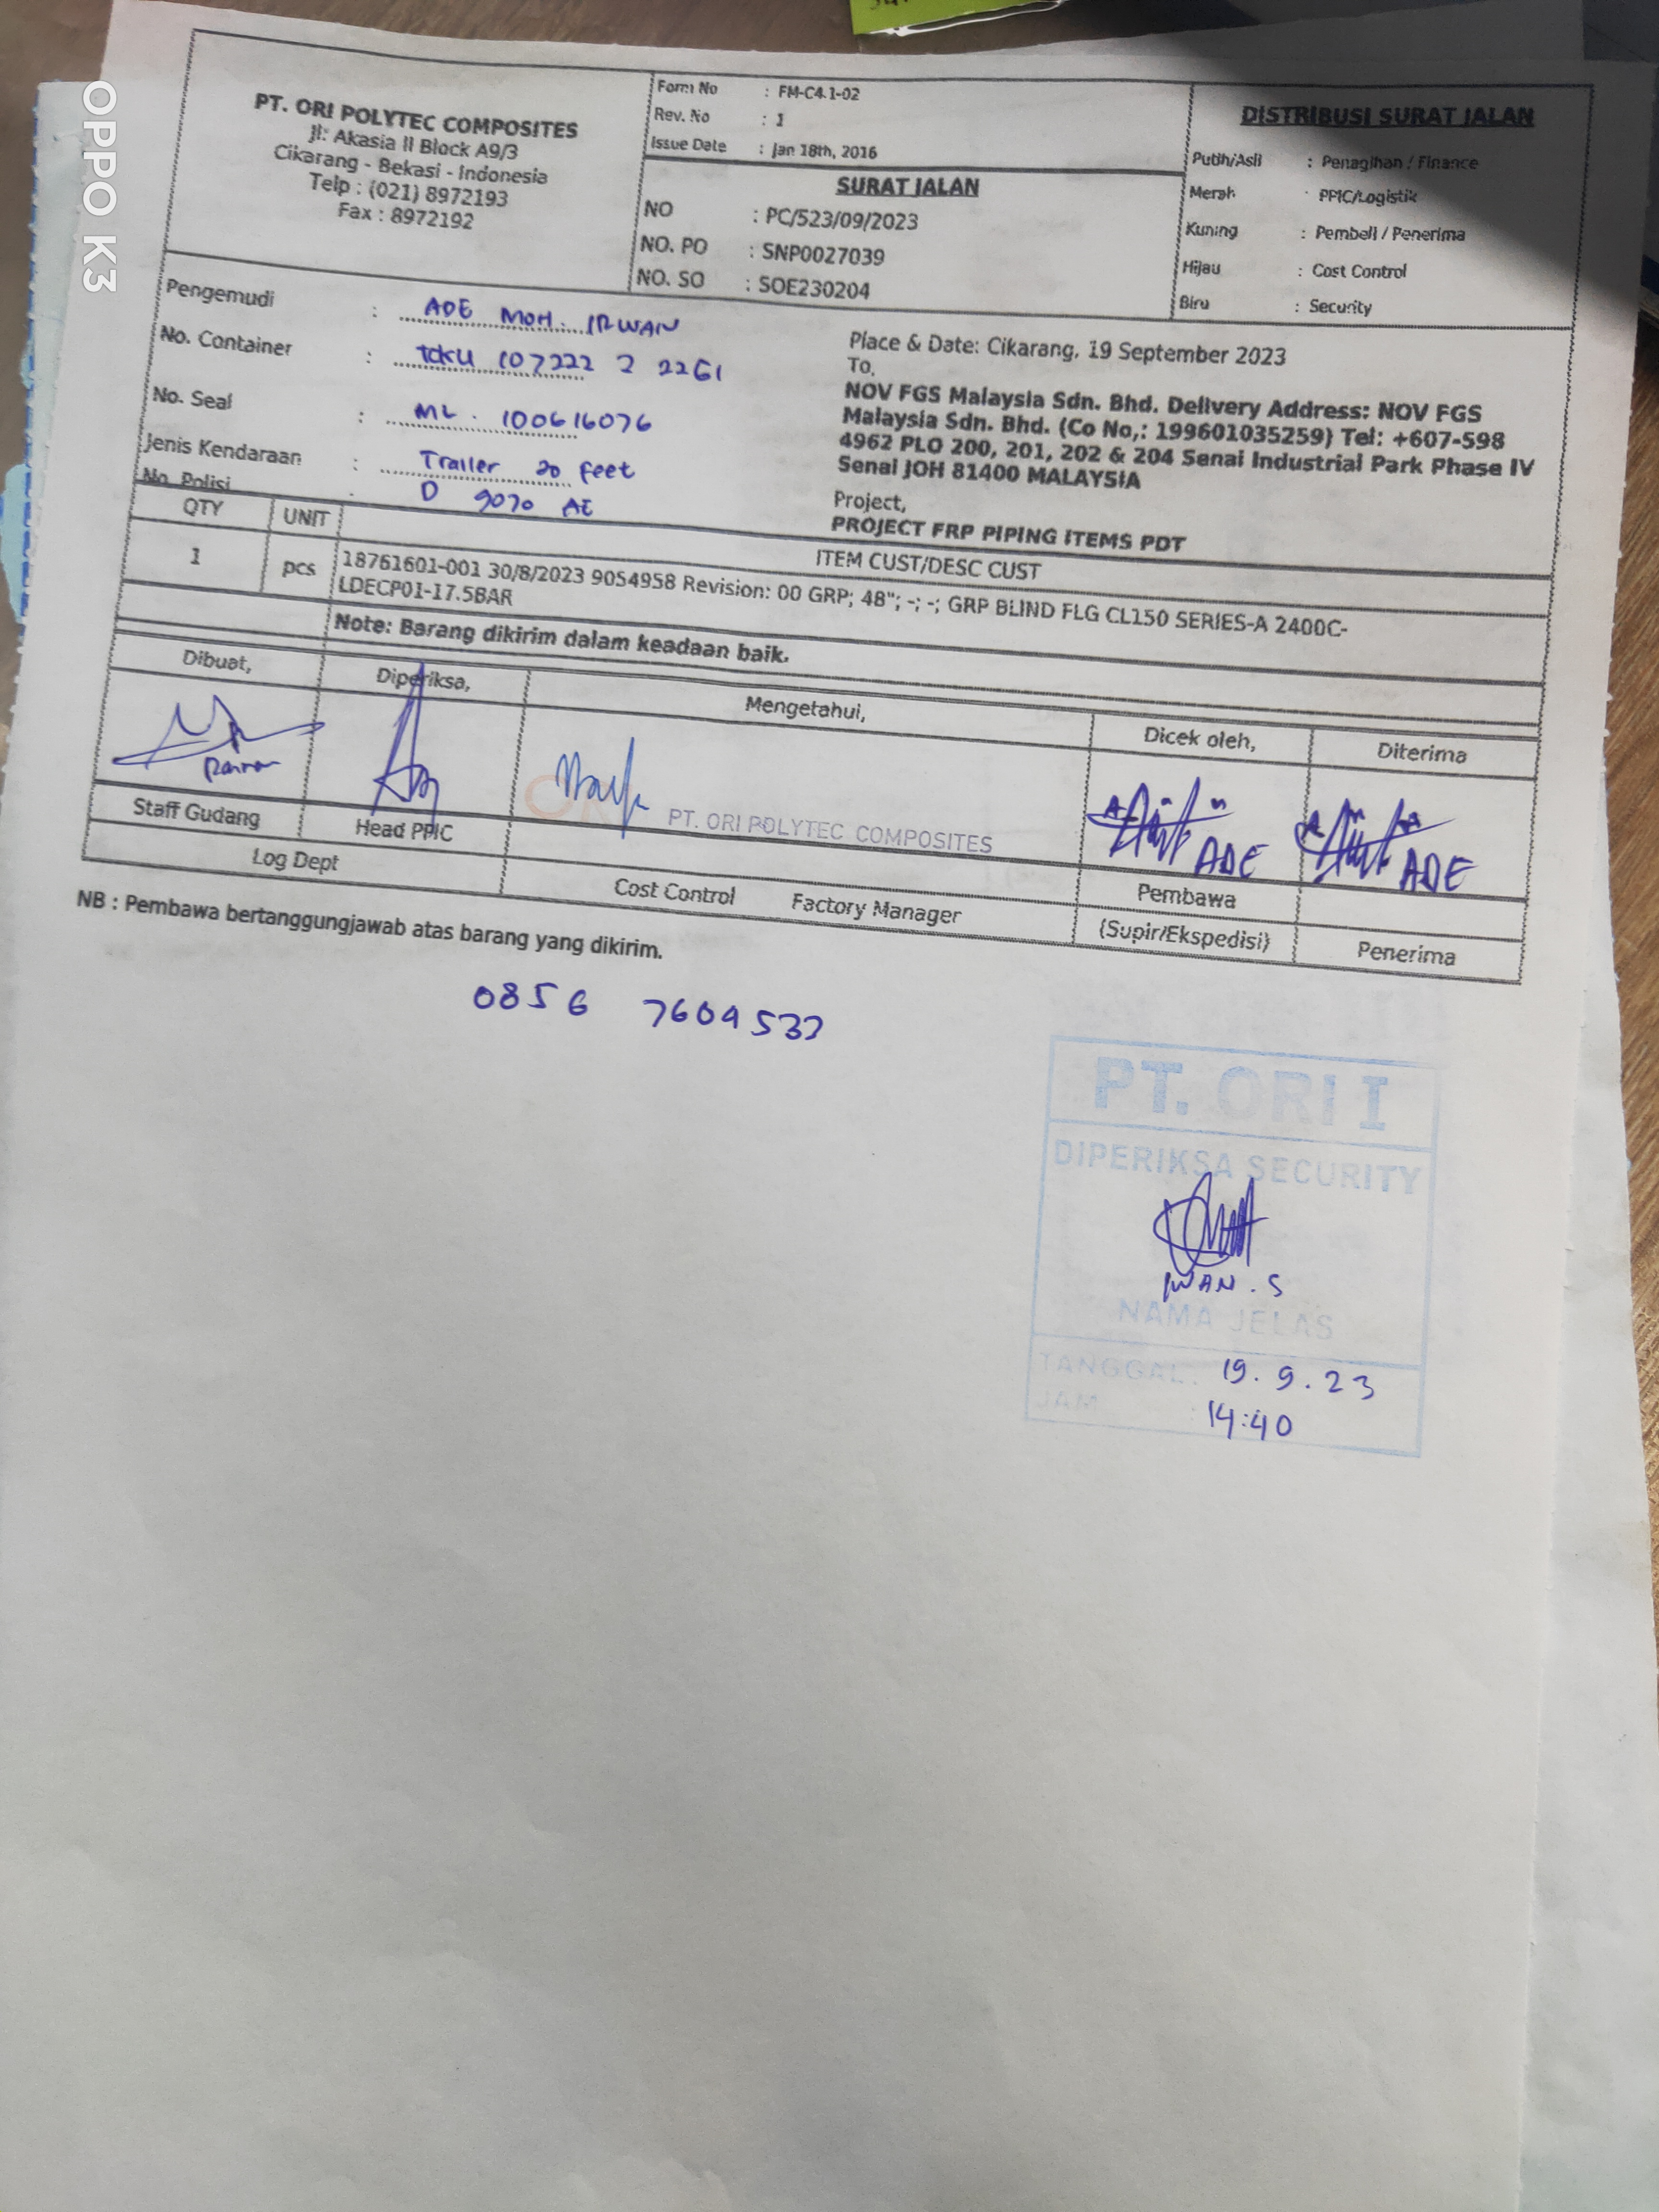 OPPO K3
PT. ORI POLYTEC COMPOSITES
Jl: Akasia II Block A9/3
Cikarang - Bekasi - Indonesia
Telp : (021) 8972193
Fax : 8972192
Form No : FM-C4.1-02
Rev. No : 1
Issue Date : Jan 18th, 2016
SURAT JALAN
NO : PC/523/09/2023
NO. PO : SNP0027039
NO. SO : SOE230204
DISTRIBUSI SURAT JALAN
Putih/Asli : Penagihan / Finance
Merah : PPIC/Logistik
Kuning : Pembeli / Penerima
Hijau : Cost Control
Biru : Security
Pengemudi : ADE MOH. IRWAN
No. Container : TCKU 107222 2 22G1
No. Seal : ML. 100616076
Jenis Kendaraan : Trailer 20 feet
No. Polisi : D 9070 AE
Place & Date: Cikarang, 19 September 2023
To,
NOV FGS Malaysia Sdn. Bhd. Delivery Address: NOV FGS
Malaysia Sdn. Bhd. (Co No,: 199601035259) Tel: +607-598
4962 PLO 200, 201, 202 & 204 Senai Industrial Park Phase IV
Senai JOH 81400 MALAYSIA
Project,
PROJECT FRP PIPING ITEMS PDT
QTY UNIT ITEM CUST/DESC CUST
1 pcs 18761601-001 30/8/2023 9054958 Revision: 00 GRP; 48"; -; -; GRP BLIND FLG CL150 SERIES-A 2400C-
LDECP01-17.5BAR
Note: Barang dikirim dalam keadaan baik.
Dibuat, Diperiksa, Mengetahui, Dicek oleh, Diterima
PT. ORI POLYTEC COMPOSITES
ADE ADE
Staff Gudang Head PPIC Pembawa
Log Dept Cost Control Factory Manager (Supir/Ekspedisi) Penerima
NB : Pembawa bertanggungjawab atas barang yang dikirim.
0856 7609533
PT. ORI I
DIPERIKSA SECURITY
IWAN. S
NAMA JELAS
TANGGAL : 19. 9. 23
JAM : 14:40